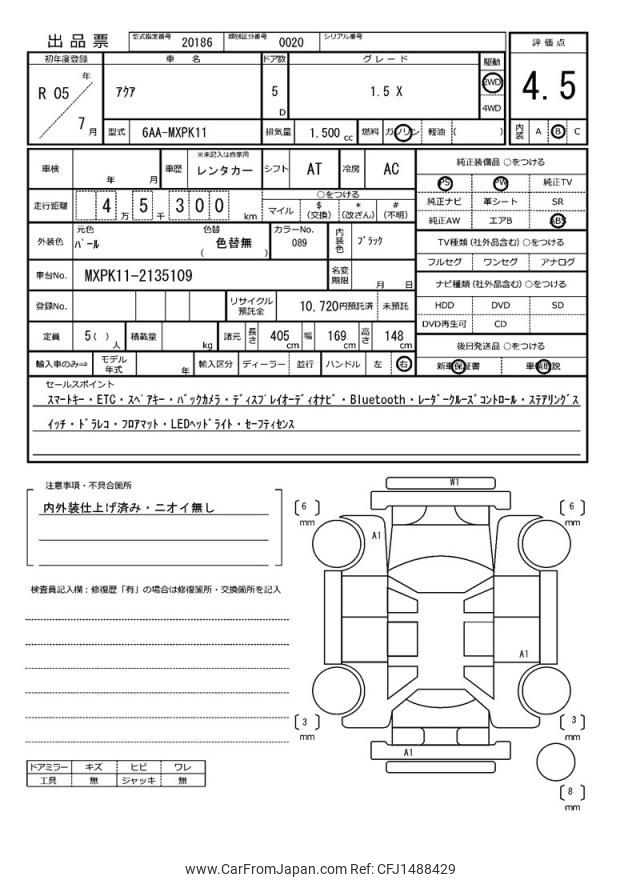 出品票 型式指定番号 20186 類別区分番号 0020 シリアル番号
評価点
4.5
内装 A B C
初年度登録 車名 ドア数 グレード 駆動
R 05 年 7 月
アクア 5 D 1.5 X 2WD 4WD
型式 6AA-MXPK11 排気量 1.500 cc 燃料 ガソリン 軽油 ( )
車検 年 月 車歴 ※未記入は自家用 レンタカー シフト AT 冷房 AC
走行距離 4 万 5 千 3 0 0 km ○をつける
マイル $ (交換) * (改ざん) # (不明)
外装色 元色 パール 色替 ( 色替無 ) カラーNo. 089 内装色 ブラック
車台No. MXPK11-2135109 名変期限 月 日
登録No. リサイクル預託金 10,720円預託済 未預託
定員 5( ) 人 積載量 kg 諸元 長さ 405 cm 幅 169 cm 高さ 148 cm
輸入車のみ⇒ モデル年式 年 輸入区分 ディーラー 並行 ハンドル 左 右
純正装備品 ○をつける
PS PW 純正TV
純正ナビ 革シート SR
純正AW エアB ABS
TV種類(社外品含む)○をつける
フルセグ ワンセグ アナログ
ナビ種類(社外品含む)○をつける
HDD DVD SD
DVD再生可 CD
後日発送品 ○をつける
新車保証書 車輌取説
セールスポイント
スマートキー・ETC・スペアキー・バックカメラ・ディスプレイオーディオナビ・Bluetooth・レーダークルーズコントロール・ステアリングス
イッチ・ドラレコ・フロアマット・LEDヘッドライト・セーフティセンス
注意事項・不具合箇所
内外装仕上げ済み・ニオイ無し
検査員記入欄:修復歴「有」の場合は修復箇所・交換箇所を記入
W1
[ 6 ] mm
[ 6 ] mm
A1
A1
[ 3 ] mm
[ 3 ] mm
A1
[ 8 ] mm
ドアミラー キズ ヒビ ワレ
工具 無 ジャッキ 無
www.CarFromJapan.com Ref: CFJ1488429